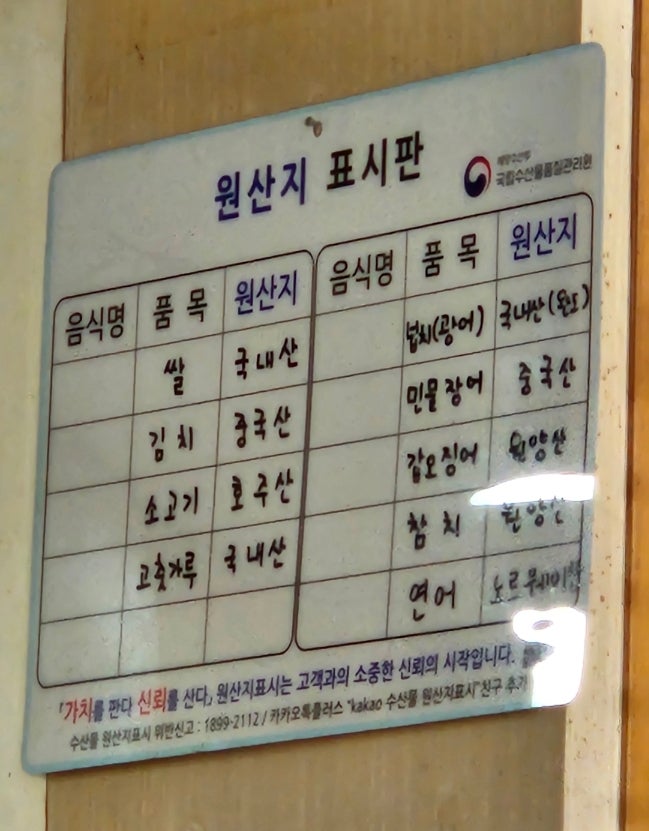 원산지 표시판
해양수산부
국립수산물품질관리원
음식명 품 목 원산지
쌀 국내산
김치 중국산
소고기 호주산
고춧가루 국내산
음식명 품 목 원산지
넙치(광어) 국내산(완도)
민물장어 중국산
갑오징어 원양산
참치 원양산
연어 노르웨이산
「가치를 판다 신뢰를 산다」 원산지표시는 고객과의 소중한 신뢰의 시작입니다.
수산물 원산지표시 위반신고 : 1899-2112 / 카카오톡플러스 "kakao 수산물 원산지표시"친구 추가